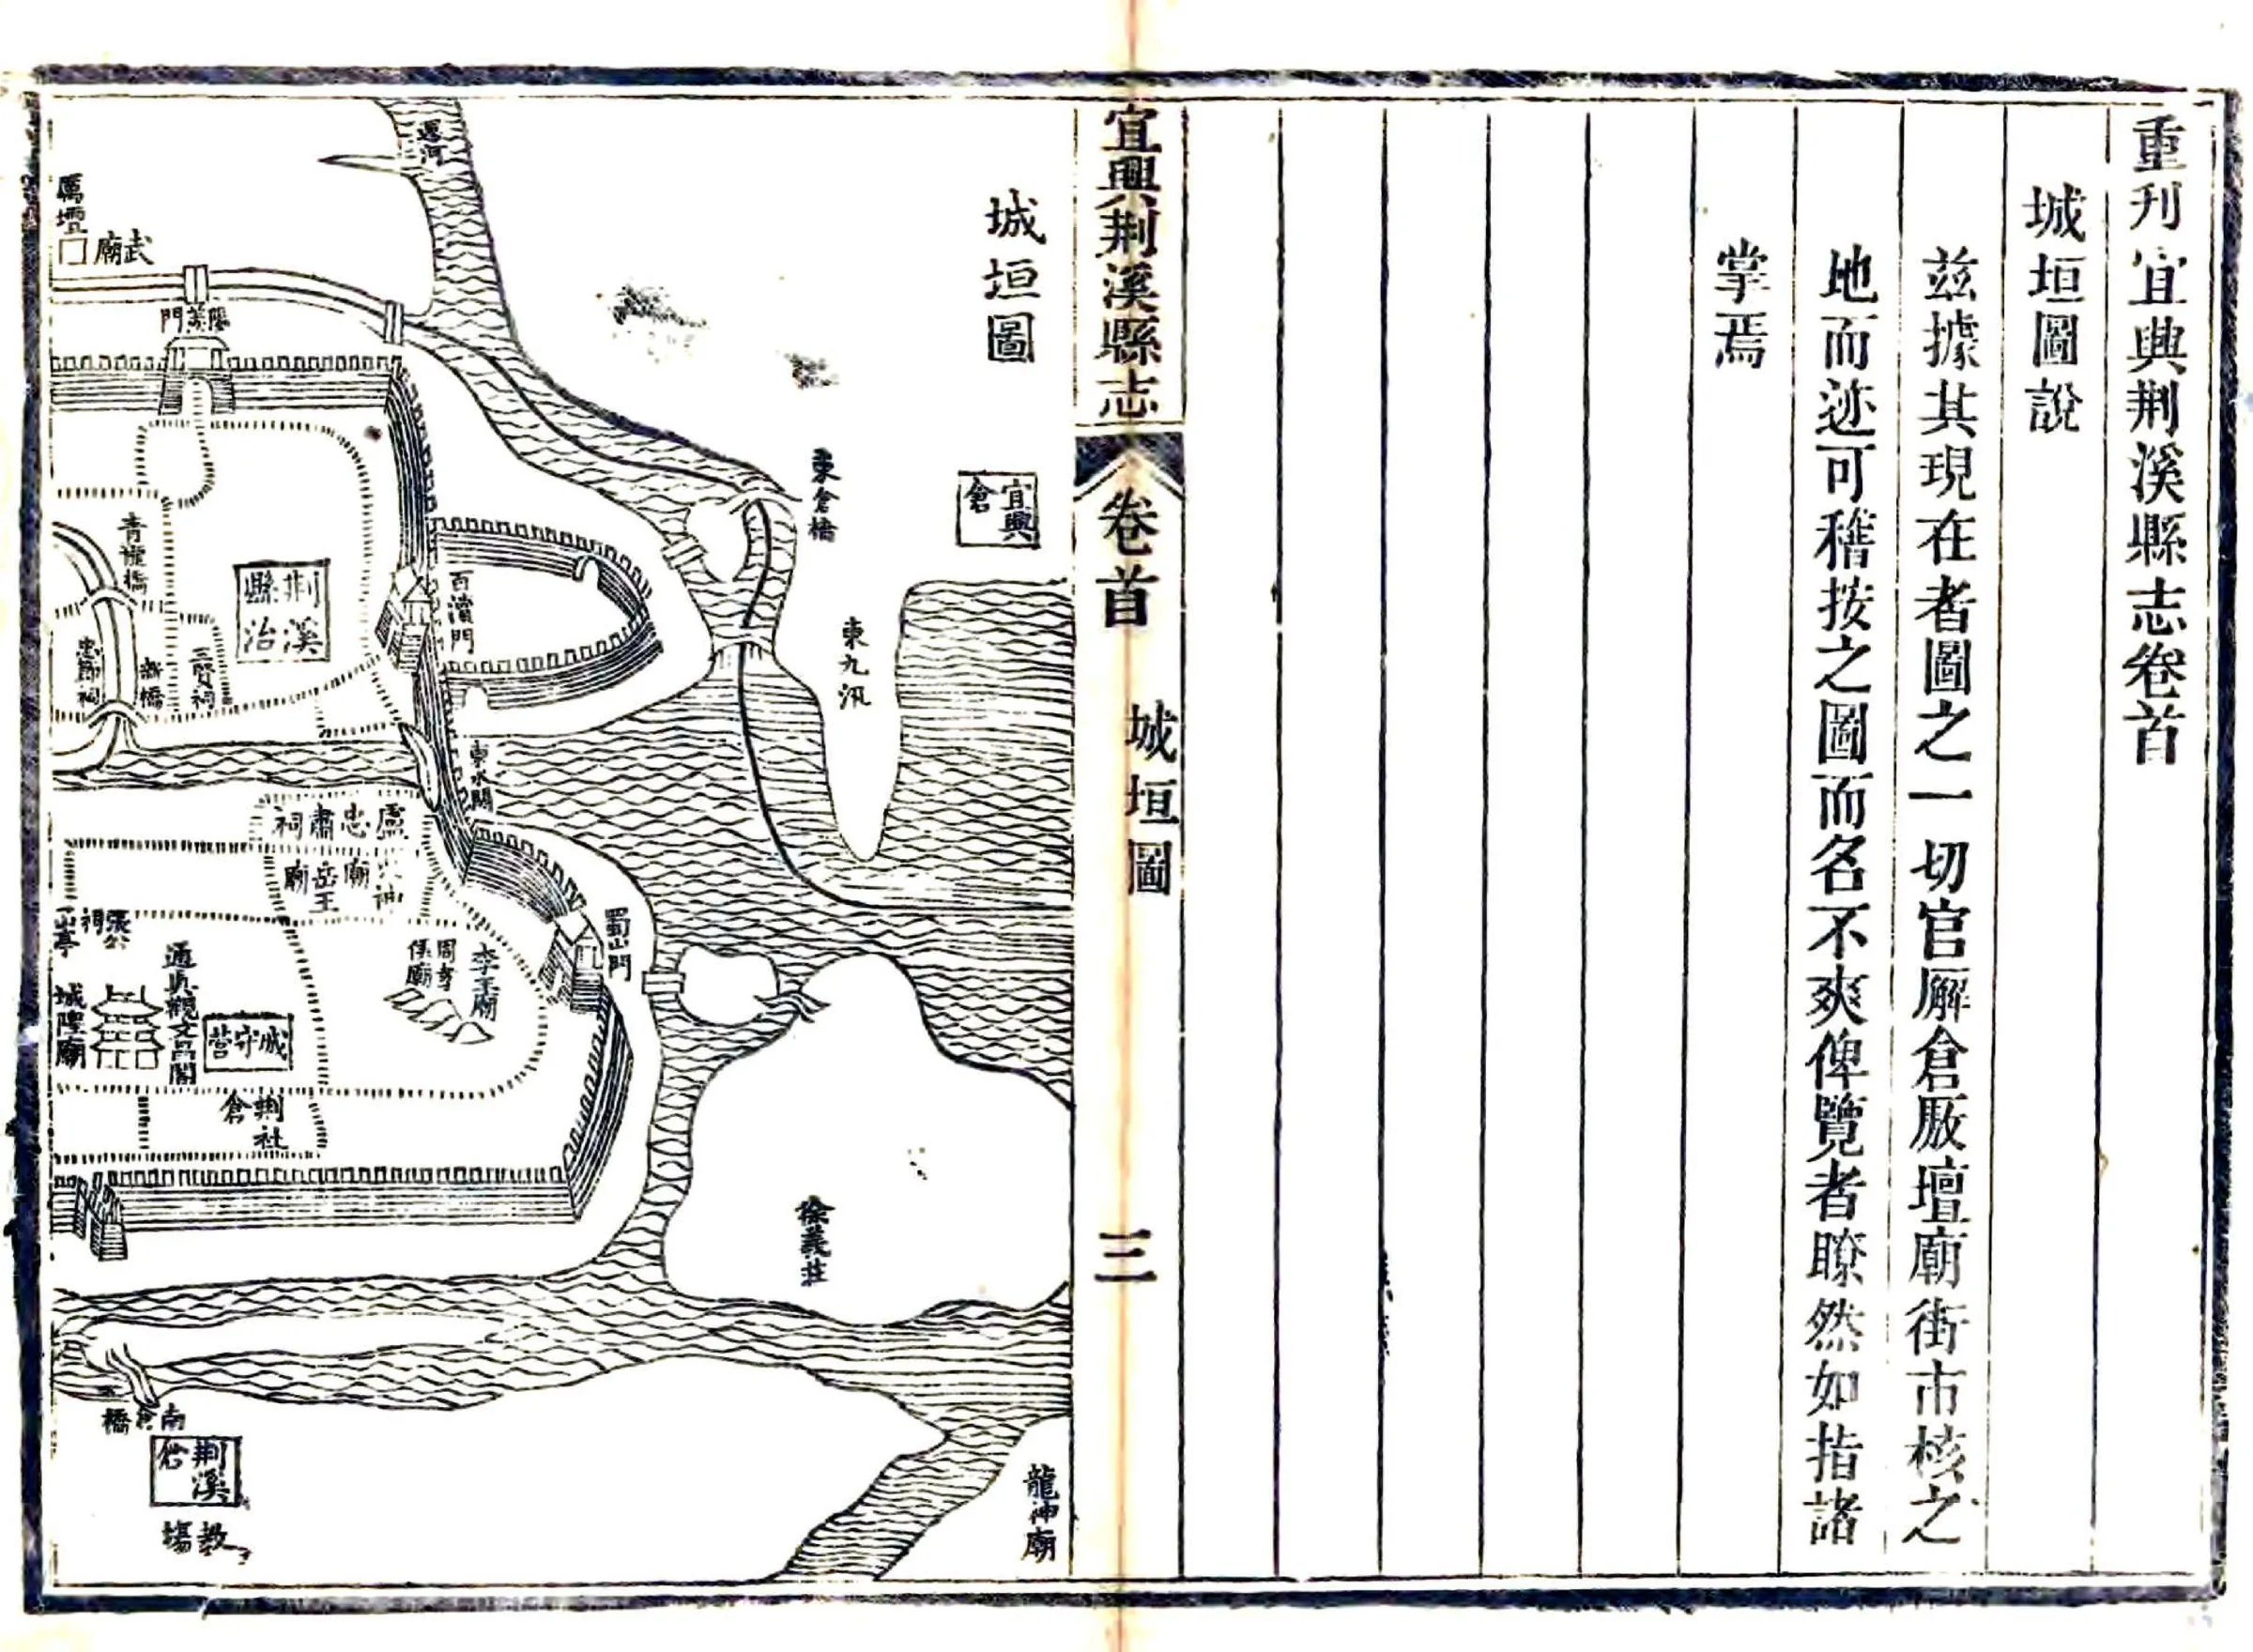 重刋宜興荆溪縣志卷首
城垣圖說
茲據其現在者圖之一切官廨倉厫壇廟街市核之
地而迹可稽按之圖而名不爽俾覽者瞭然如指諸
掌焉
宜興荆溪縣志
卷首
城垣圖
三
城垣圖
宜興倉
東倉橋
東九汛
運河
厲壇
武廟
陽羡門
青龍橋
荆溪縣治
百瀆門
忠節祠
新橋
三賢祠
東水關
盧忠肅祠
火神廟
岳王廟
張公祠
山亭
蜀山門
李王廟
周孝侯廟
通真觀文昌閣
城隍廟
城守營
荆社倉
徐義莊
南倉橋
荆溪倉
教場
龍神廟